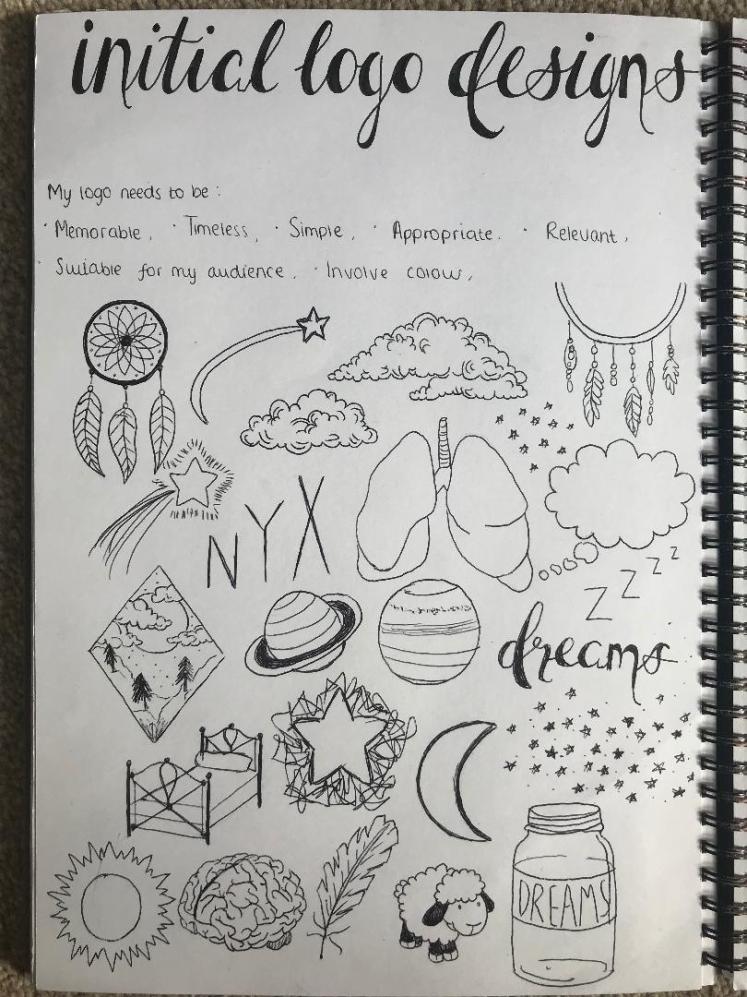 initial logo designs
My logo needs to be :
· Memorable, · Timeless, · Simple, · Appropriate. · Relevant,
· Suiable for my audience, · Involve colour,
NYX
Z Z Z Z
dreams
DREAMS